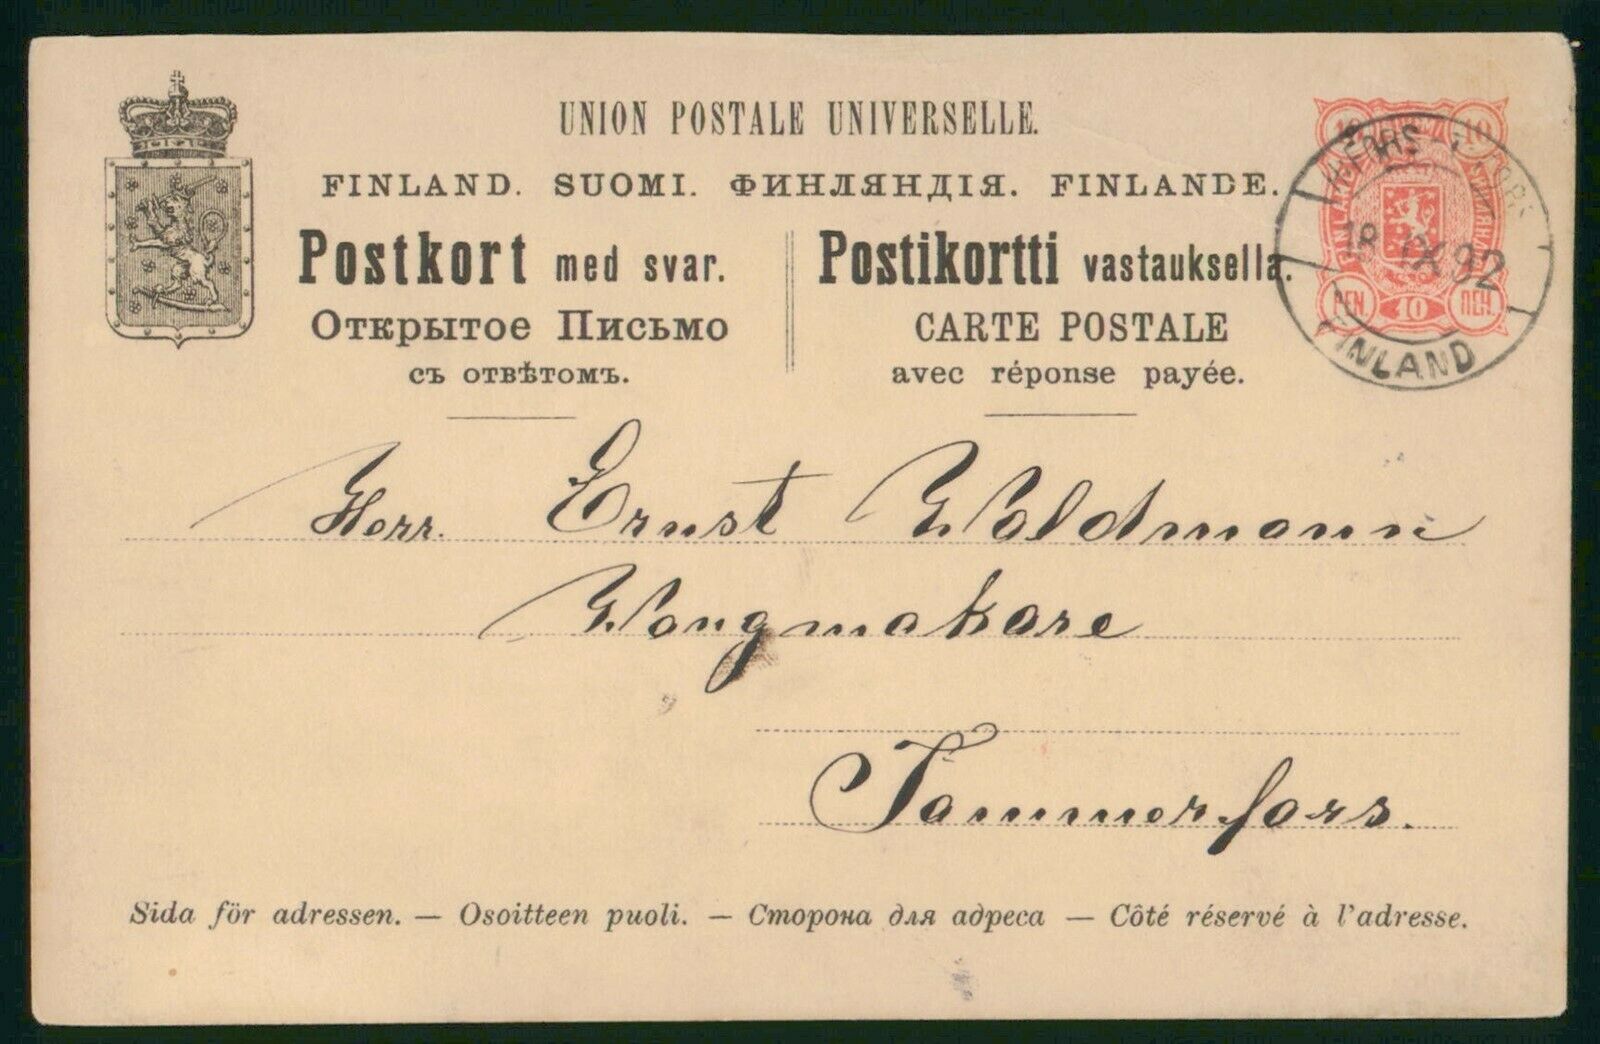 UNION POSTALE UNIVERSELLE.
FINLAND. SUOMI. ФИНЛЯНДІЯ. FINLANDE.
Postkort med svar.
Открытое Письмо
съ отвѣтомъ.
Postikortti vastauksella.
CARTE POSTALE
avec réponse payée.
10 10
PEN. 10 ПЕН.
18 IX 92
FINLAND
Herr. Ernst Woldmann
Wongmakare
Tammerfors.
Sida för adressen. — Osoitteen puoli. — Сторона для адреса — Côté réservé à l'adresse.